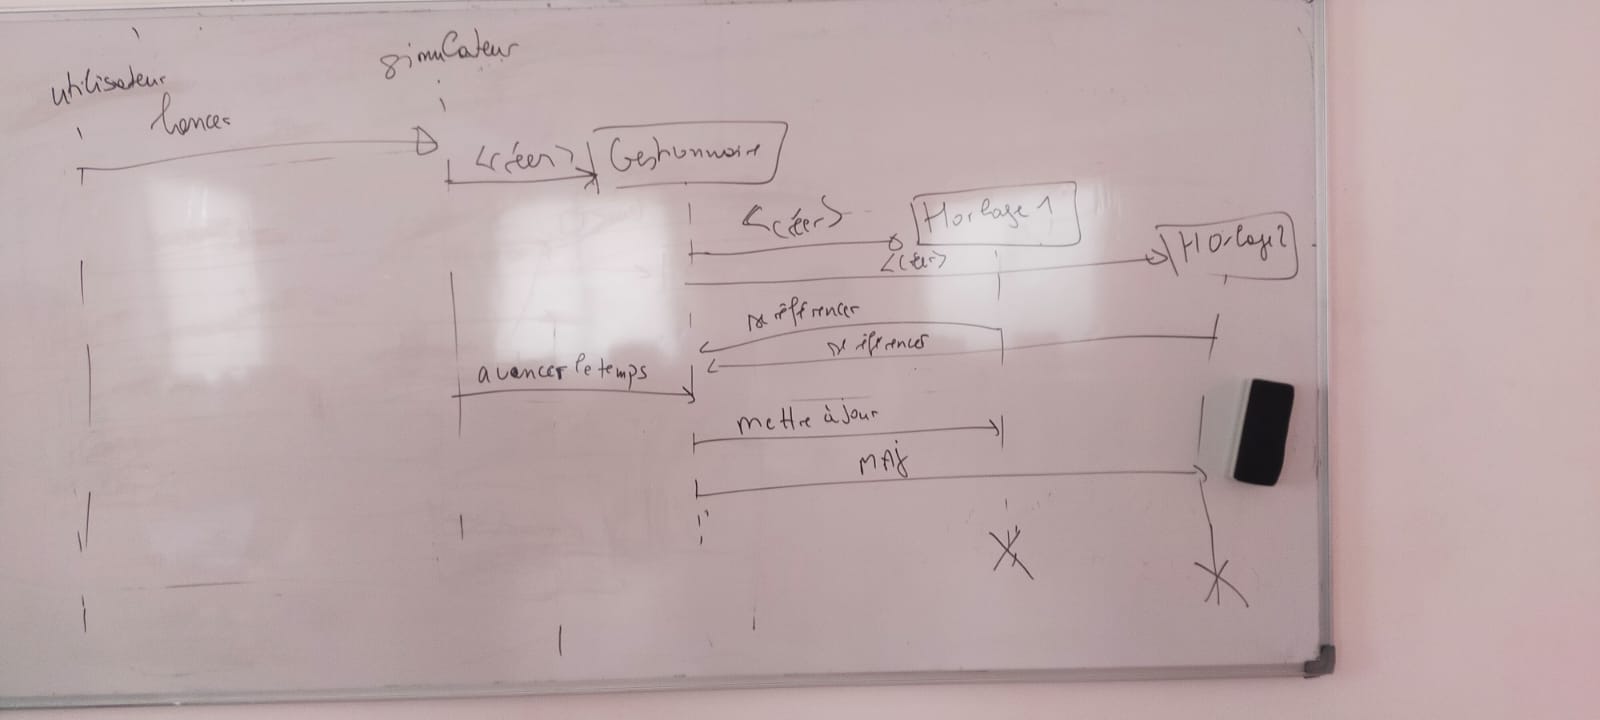 utilisateur
simulateur
lancer
<créer>
Gestionnaire
<créer>
Horloge 1
<créer>
Horloge 2
référencer
références
avancer le temps
mettre à jour
MAJ